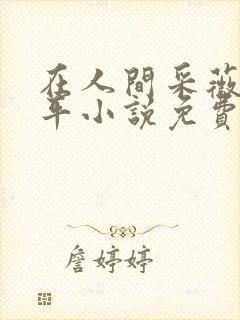 在人間采薇
年小說免費
詹婷婷